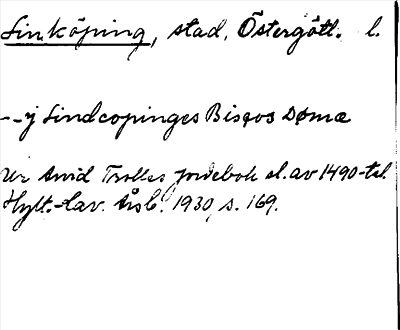 Linköping, stad, Östergötl. l.
--j Lindcopinges Biscos Dømæ
Ur Arvid Trolles jordebok sl. av 1490-tal.
Hylt.-Cav. Årsb. 1930, s. 169.